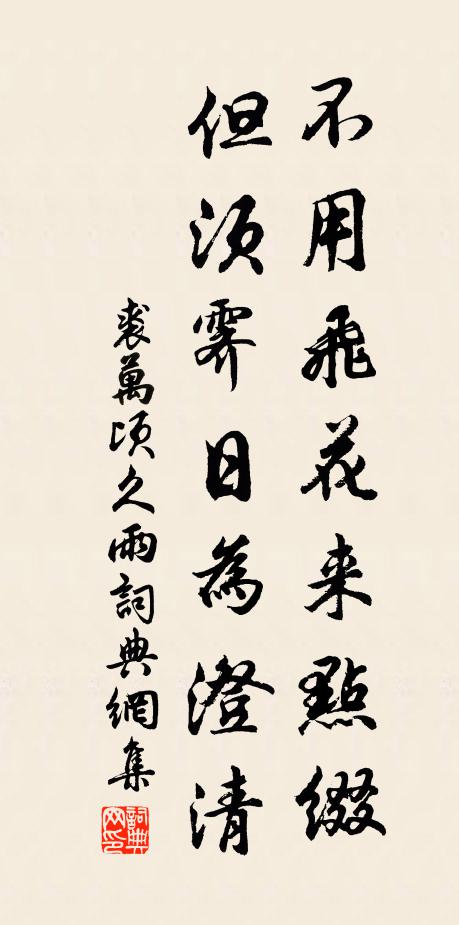 不用飛花来點綴
但須霽日為澄清
裘萬頃久雨詞典網集
詞典網印